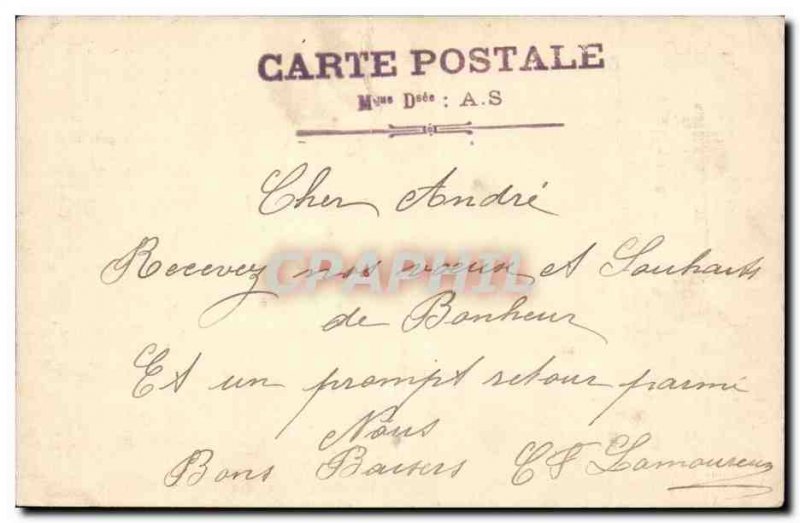 CARTE POSTALE
Mque Dsée : A.S
Cher André
Recevez nos vœux et Souhaits
CPRAPHIL
de Bonheur
Et un prompt retour parmi
Nous
Bons Baisers C F Lamoureux